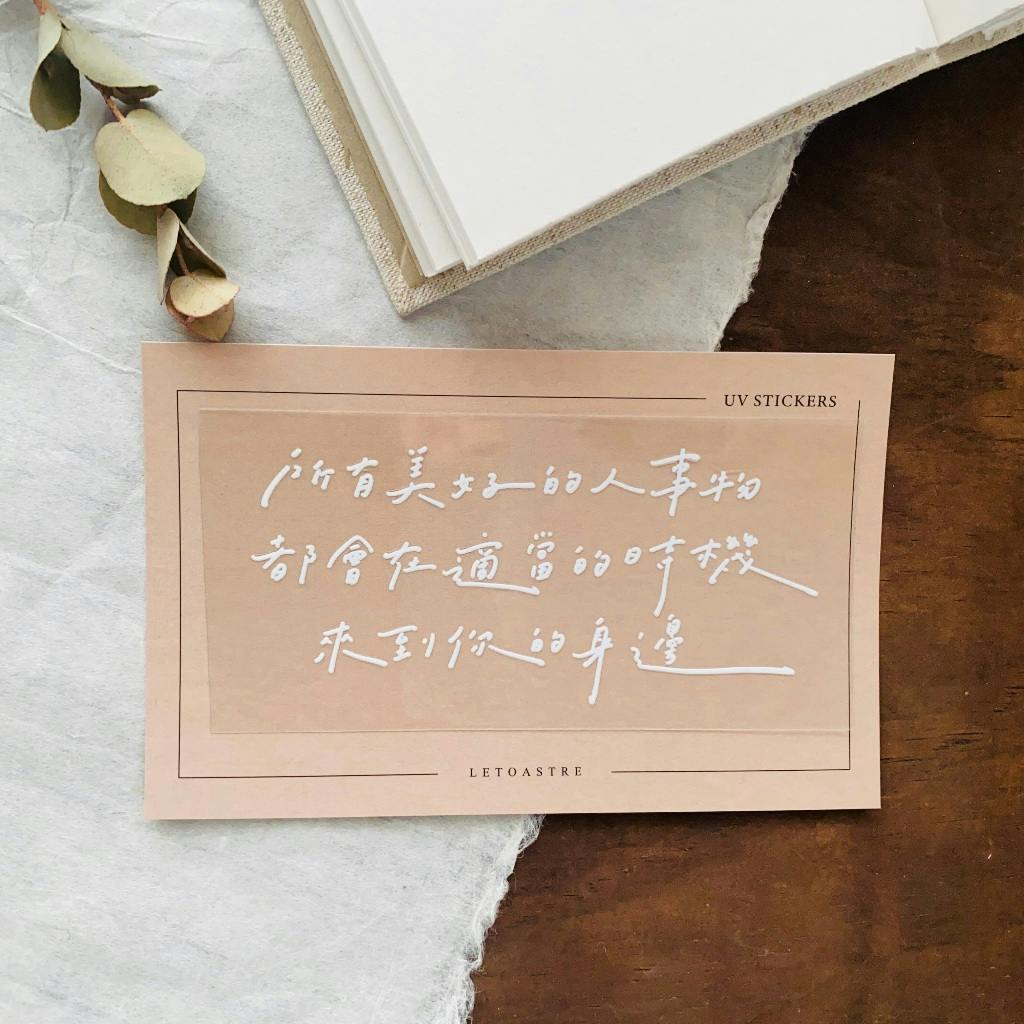 UV STICKERS
所有美好的人事物
都會在適當的時機
來到你的身邊
LETOASTRE